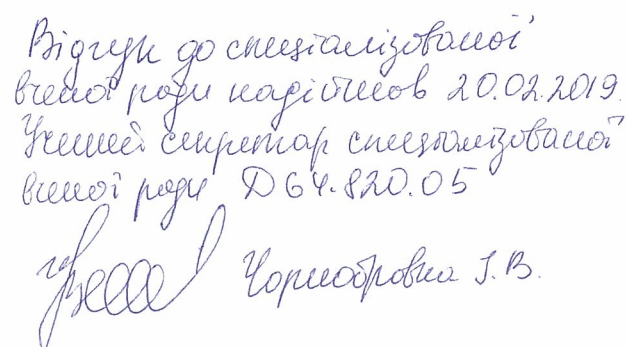 Відгук до спеціалізованої
вченої ради надійшов 20.02.2019.
Учений секретар спеціалізованої
вченої ради Д 64.820.05
Чорнобровка І.В.